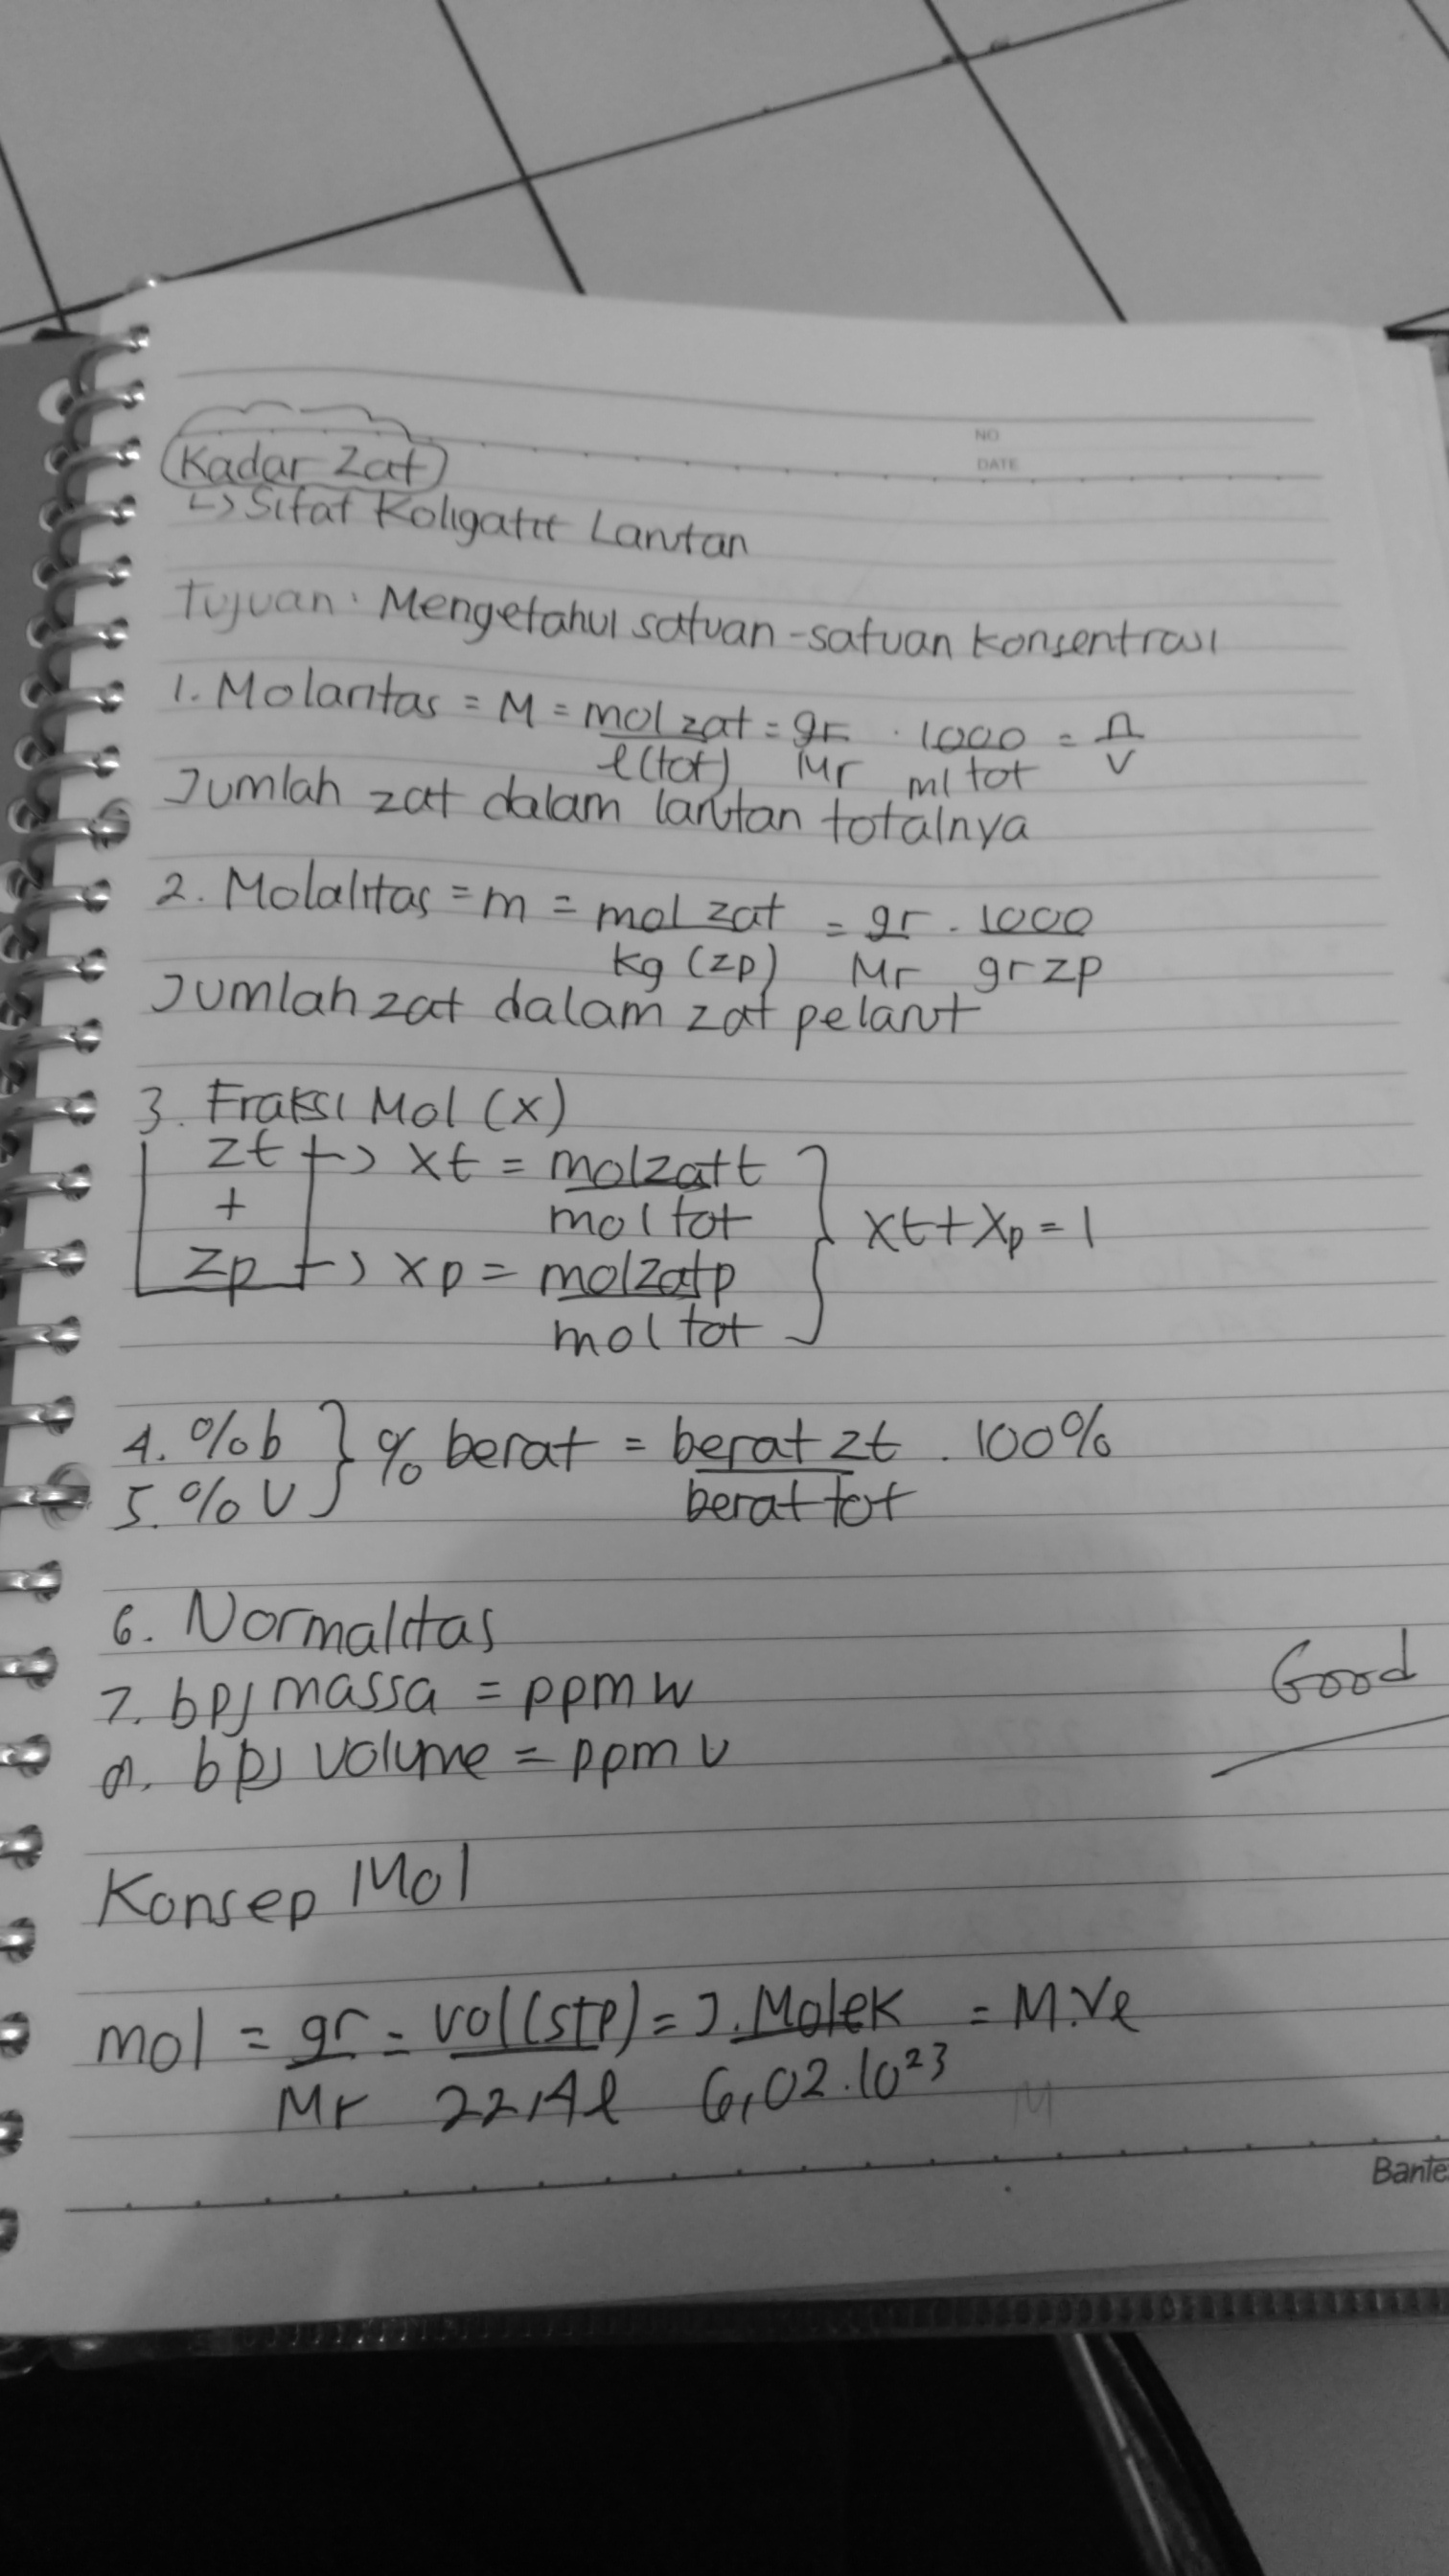 NO
DATE
Kadar Zat
↳ Sifat Koligatif Larutan
Tujuan : Mengetahui satuan-satuan konsentrasi
1. Molaritas = M = mol zat / l(tot) = gr / Mr . 1000 / ml tot = n / v
Jumlah zat dalam larutan totalnya
2. Molalitas = m = mol zat / kg (zp) = gr / Mr . 1000 / gr zp
Jumlah zat dalam zat pelarut
3. Fraksi Mol (x)
zt → xt = mol zat t / mol tot
+
zp → xp = mol zat p / mol tot
} xt + xp = 1
4. % b
5. % v
} % berat = berat zt / berat tot . 100%
6. Normalitas
7. bpj massa = ppm w
8. bpj volume = ppm v
Good
Konsep Mol
mol = gr / Mr = vol (stp) / 22,4 l = J. Molek / 6,02.10²³ = M.Vl
M
Bante